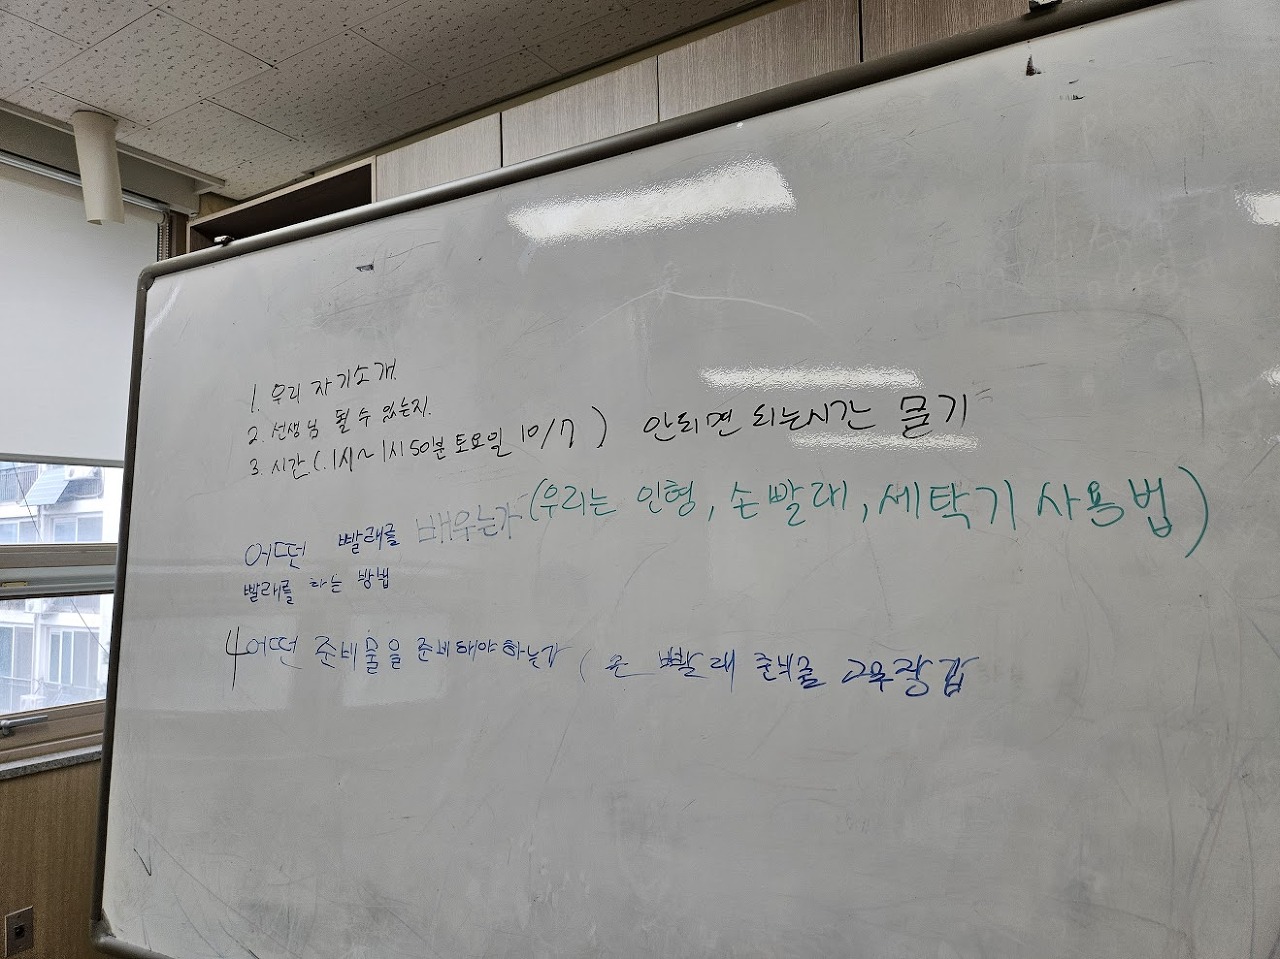 1. 우리 자기소개.
2. 선생님 될 수 있는지.
3. 시간 (1시~1시50분 토요일 10/7) 안되면 되는시간 묻기
어떤 빨래를 배우는가 (우리는 인형, 손빨래, 세탁기 사용법)
빨래를 하는 방법
4 어떤 준비물을 준비해야하는가 (손 빨래 준비물 고무장갑